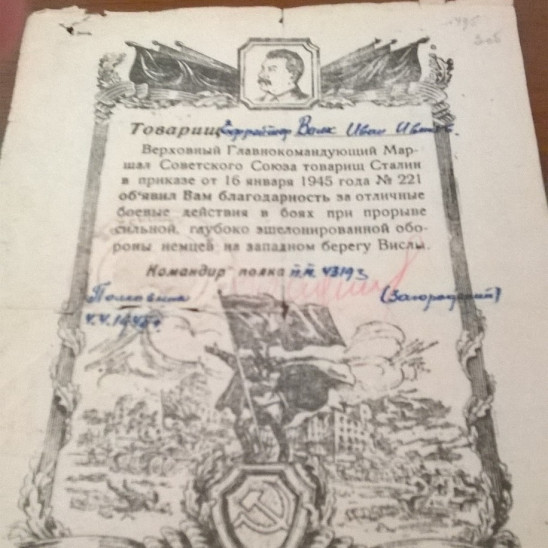 495
305
Товарищ ефрейтор Волк Иван Ивтих.
Верховный Главнокомандующий Мар-
шал Советского Союза товарищ Сталин
в приказе от 16 января 1945 года № 221
объявил Вам благодарность за отличные
боевые действия в боях при прорыве
сильной, глубоко эшелонированной обо-
роны немцев на западном берегу Вислы.
Командир полка п.п. 43193
Полковник (Загородний)